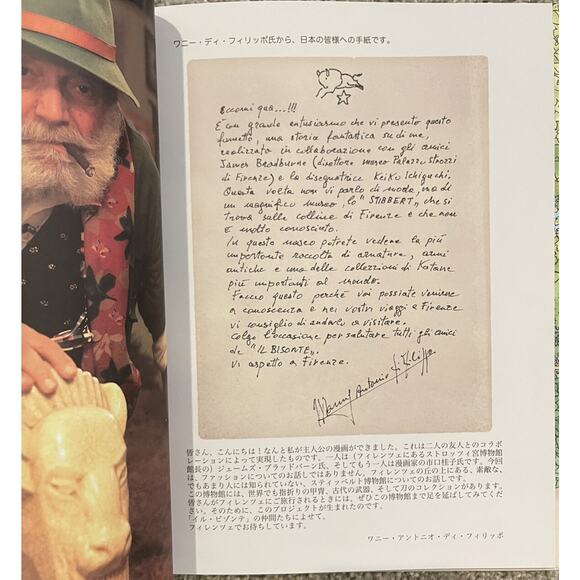 ワニー・ディ・フィリッポ氏から、日本の皆様への手紙です。
Eccomi qua...!!!
È con grande entusiasmo che vi presento questo
fumetto, una storia fantastica su di me,
realizzato in collaborazione con gli amici
James Bradburne (direttore museo Palazzo Strozzi
di Firenze) e la disegnatrice Keiko Ichiguchi.
Questa volta non vi parlo di moda, ma di
un magnifico museo, lo "STIBBERT", che si
trova sulle colline di Firenze e che non
è molto conosciuto.
In questo museo potrete vedere la più
importante raccolta di armature, armi
antiche e una delle collezioni di Katane
più importanti al mondo.
Faccio questo perché voi possiate venirne
a conoscenza e nei vostri viaggi a Firenze
vi consiglio di andarlo a visitare.
Colgo l'occasione per salutare tutti gli amici
de "IL BISONTE".
Vi aspetto a Firenze.
Wanny Antonio Di Filippo
皆さん、こんにちは！なんと私が主人公の漫画ができました。これは二人の友人とのコラボ
レーションによって実現したものです。一人は（フィレンツェにあるストロッツィ宮博物館
館長の）ジェームズ・ブラッドバーン氏、そしてもう一人は漫画家の市口桂子氏です。今回
は、ファッションについてのお話しではありません。フィレンツェの丘の上にある、素敵な、
でもあまり人には知られていない、スティッベルト博物館についてのお話しです。
この博物館には、世界でも指折りの甲冑、古代の武器、そして刀のコレクションがあります。
皆さんがフィレンツェにご旅行されるときには、ぜひこの博物館まで足を延ばしてみてくだ
さい。そのために、このプロジェクトが生まれたのです。
「イル・ビゾンテ」の仲間たちによせて。
フィレンツェでお待ちしています。
ワニー・アントニオ・ディ・フィリッポ